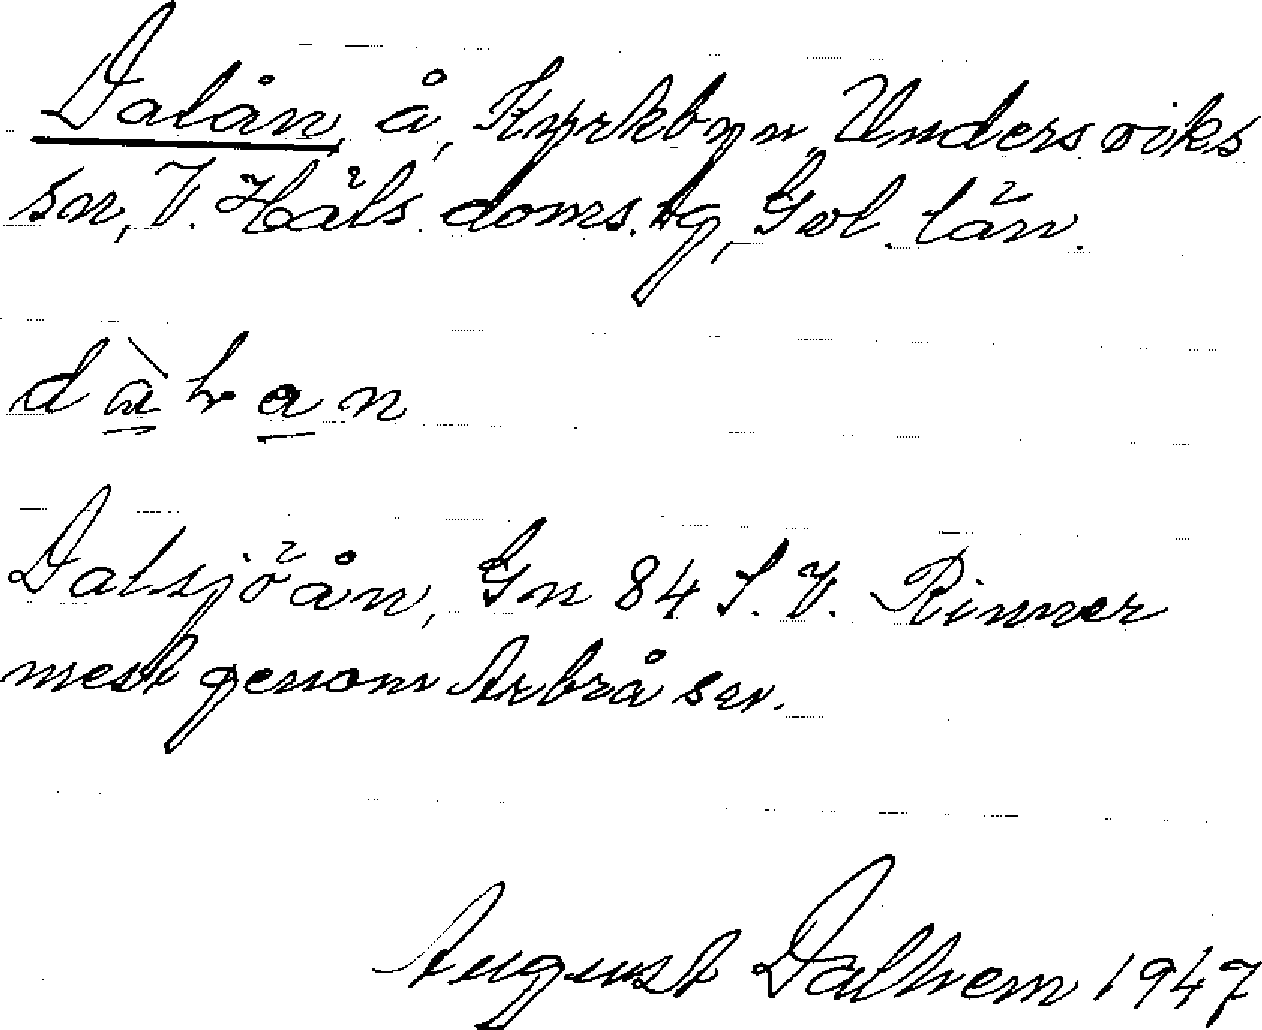 Dalån, å, Kyrkbyn, Undersviks
sn, V. Häls. doms. tg, Gvl. län.
dàlan
Dalsjöån, Gn 84 S. V. Rinner
mest genom Arbrå sn.
August Dalhem 1947